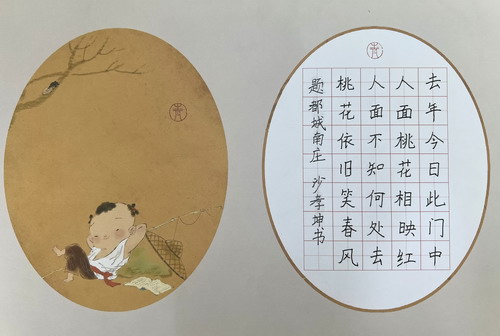 去年今日此门中
人面桃花相映红
人面不知何处去
桃花依旧笑春风
题都城南庄 沙孝坤书